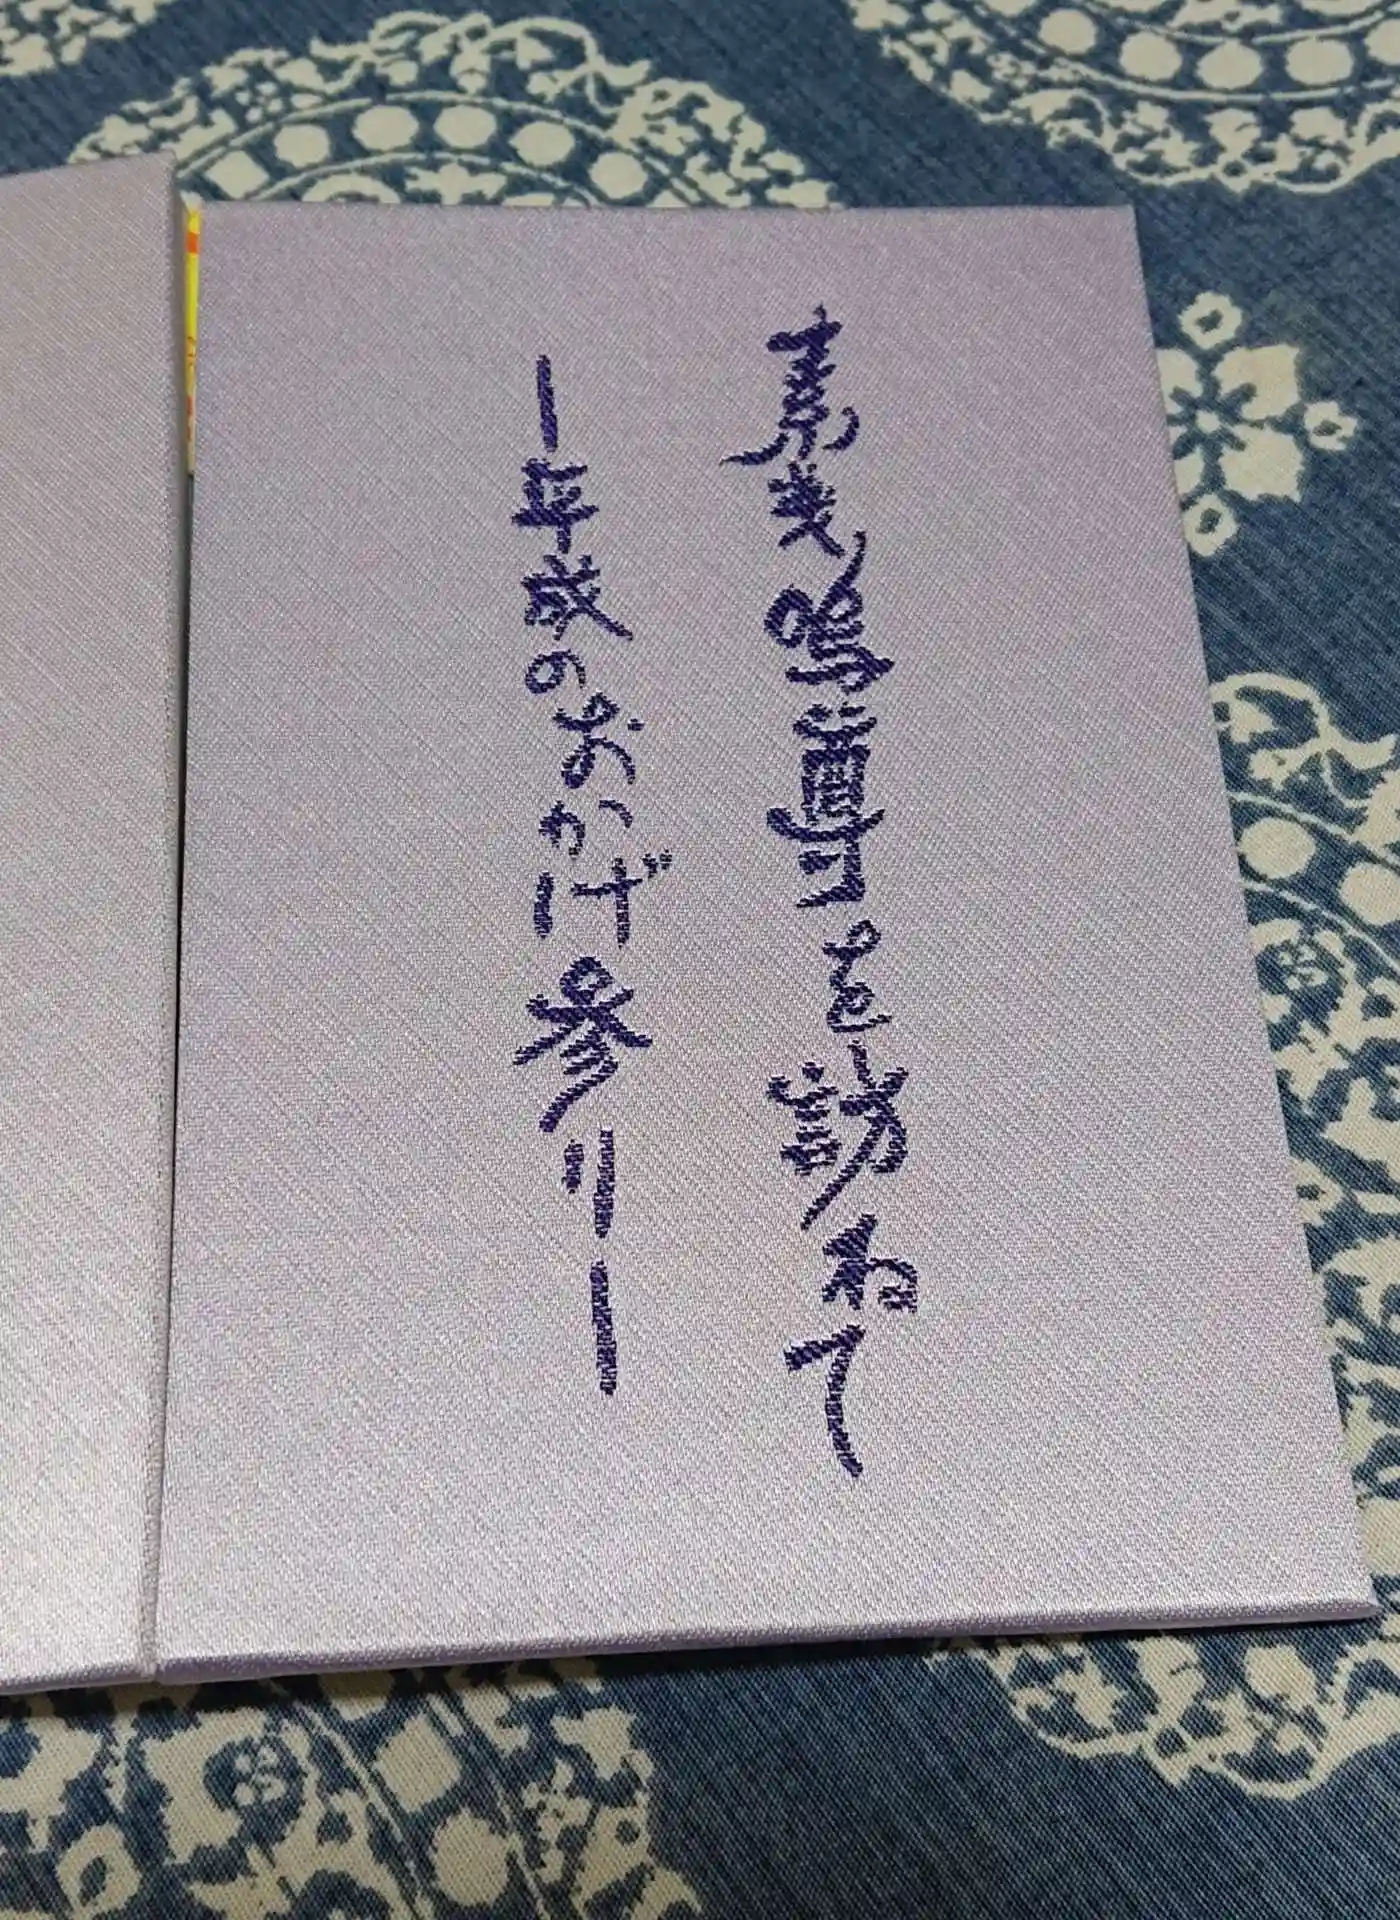 素戔嗚尊を訪ねて
―平成のおかげ参り―